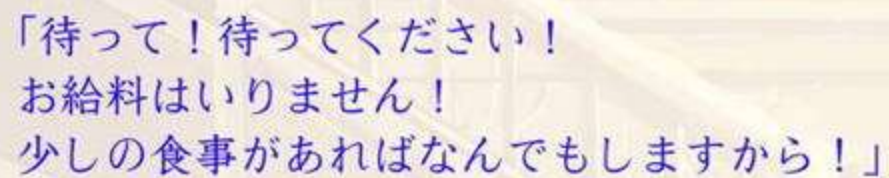 「待って！待ってください！
お給料はいりません！
少しの食事があればなんでもしますから！」